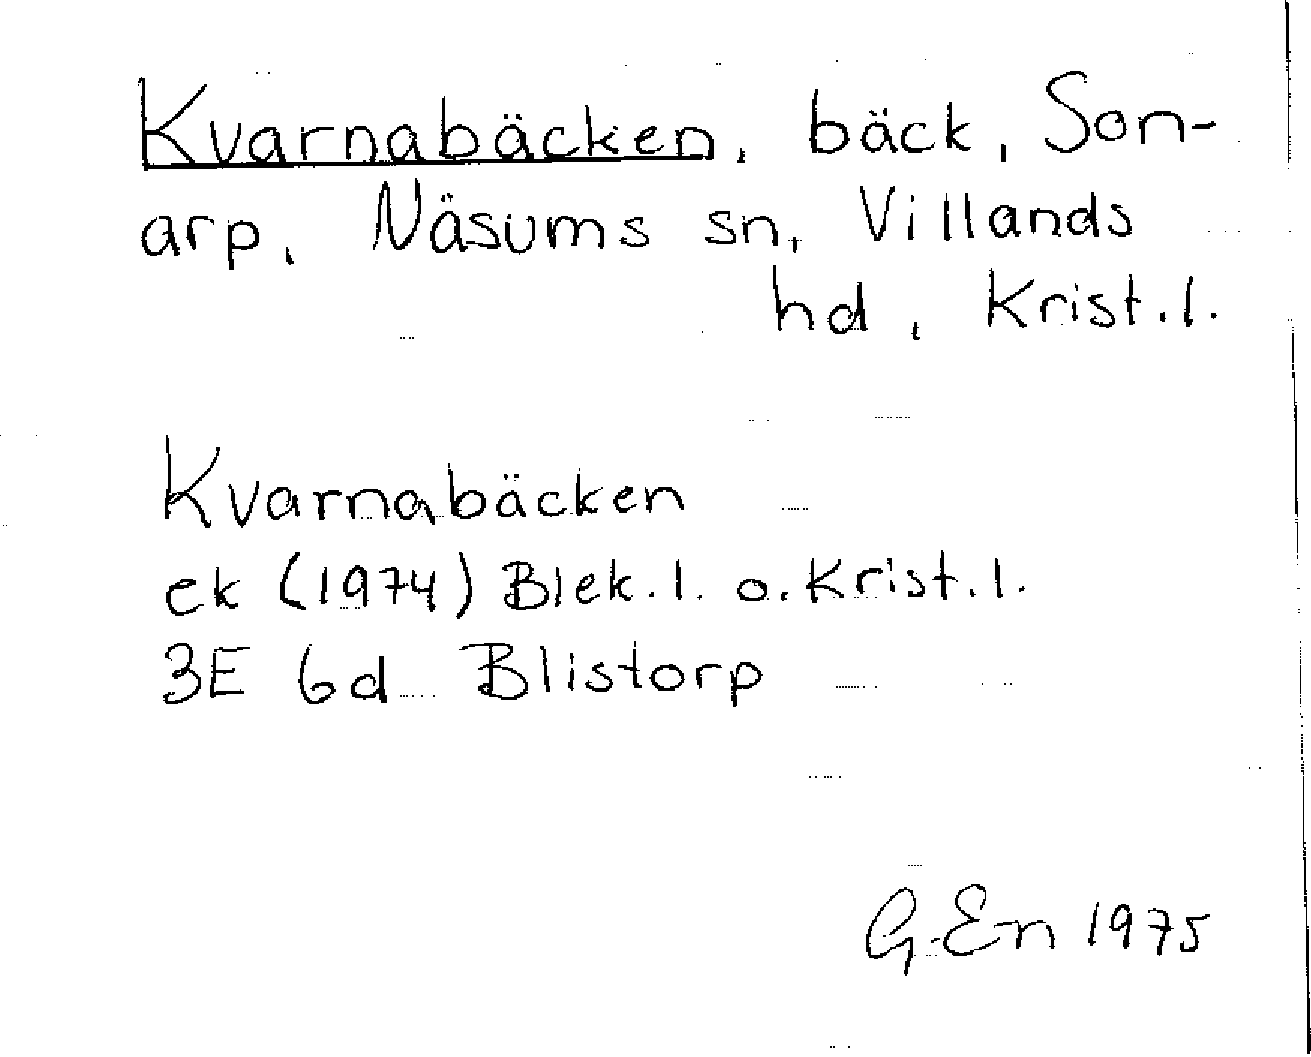 Kvarnabäcken, bäck, Son-
arp, Näsums sn, Villands
hd, Krist.l.
Kvarnabäcken
ek (1974) Blek.l. o. Krist.l.
3E 6d Blistorp
G. En 1975